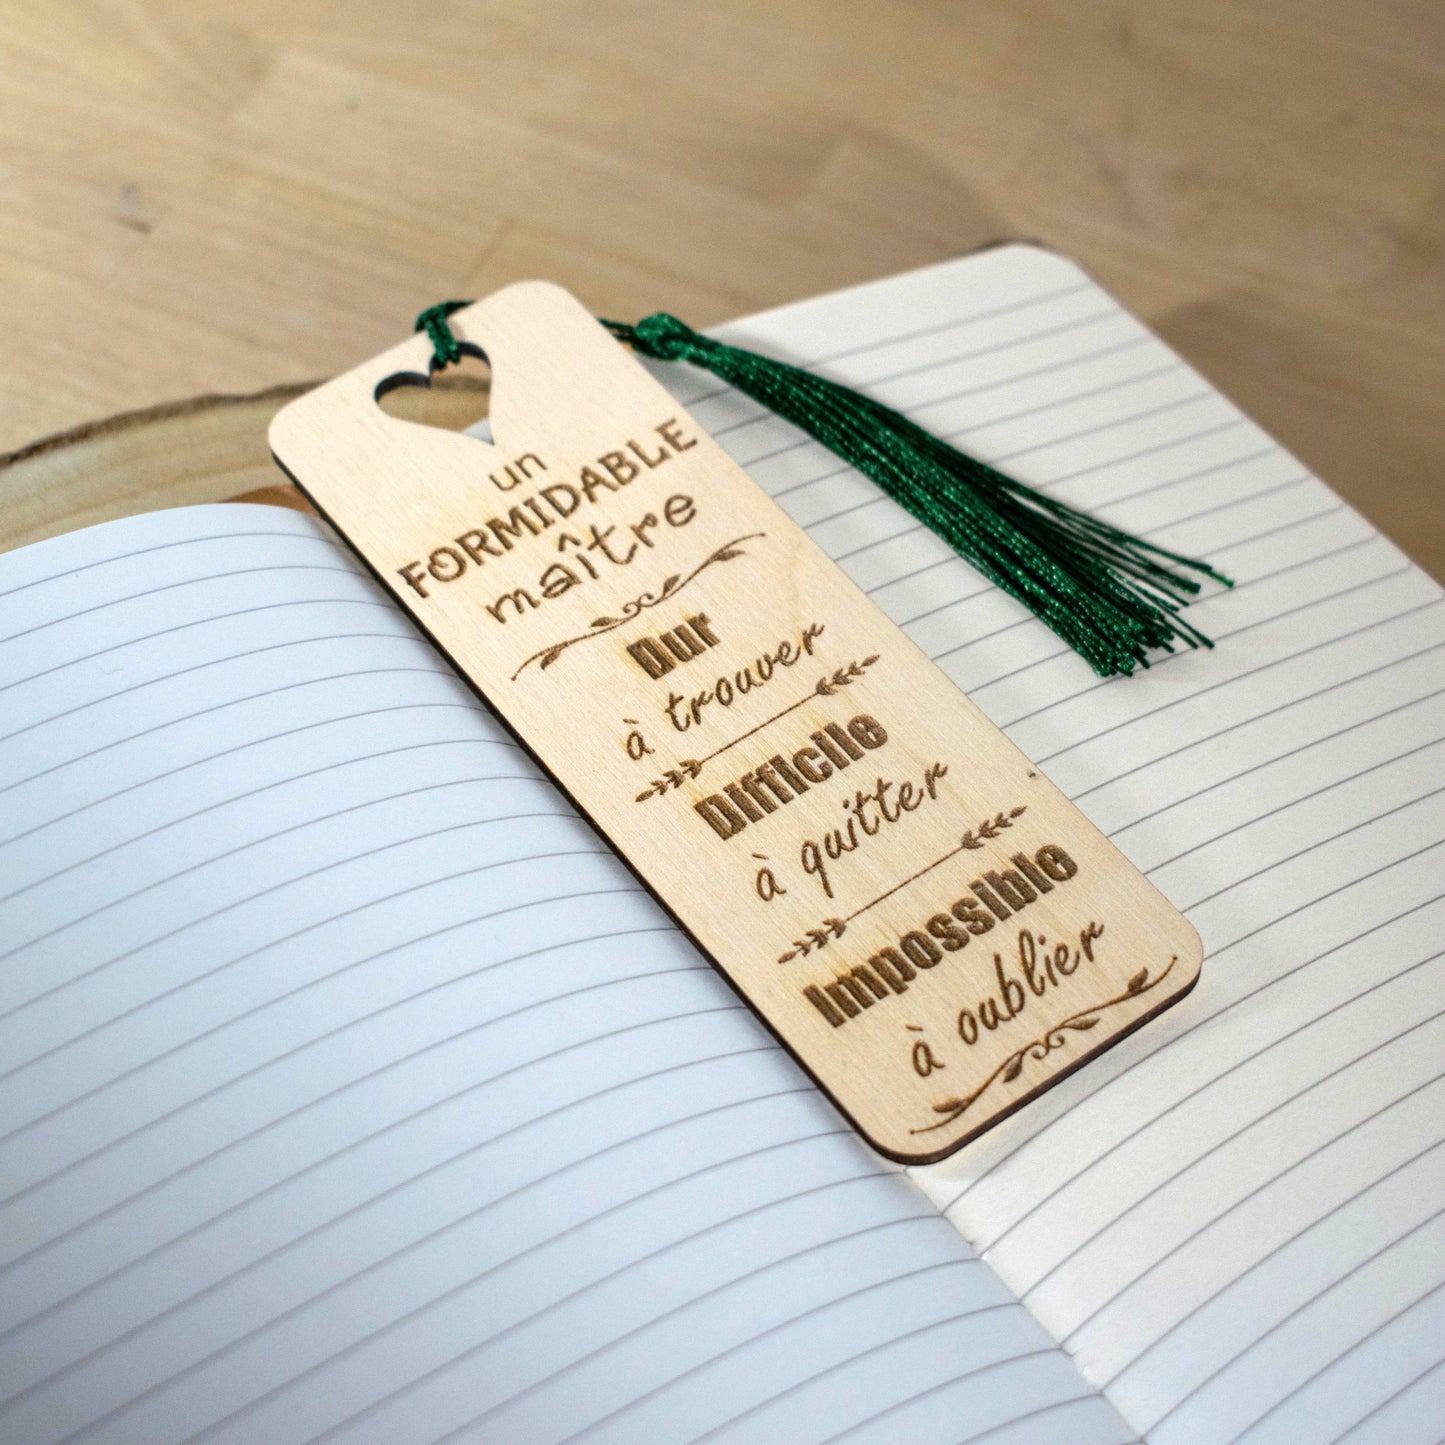 un
FORMIDABLE
maître
Dur
à trouver
Difficile
à quitter
Impossible
à oublier